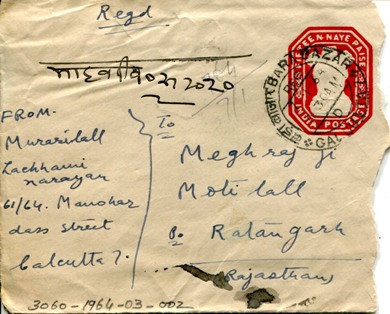 Regd
२०२०
FROM.
Murarilall
Lachhmi
narayan
61/64. Manohar
dass street
Calcutta 7.
To
Meghraj Ji
Moti lall
Ratangarh
(Rajasthan)
NAYE PAISE
INDIA POSTAGE
BARA BAZAR
3060-1964-03-002